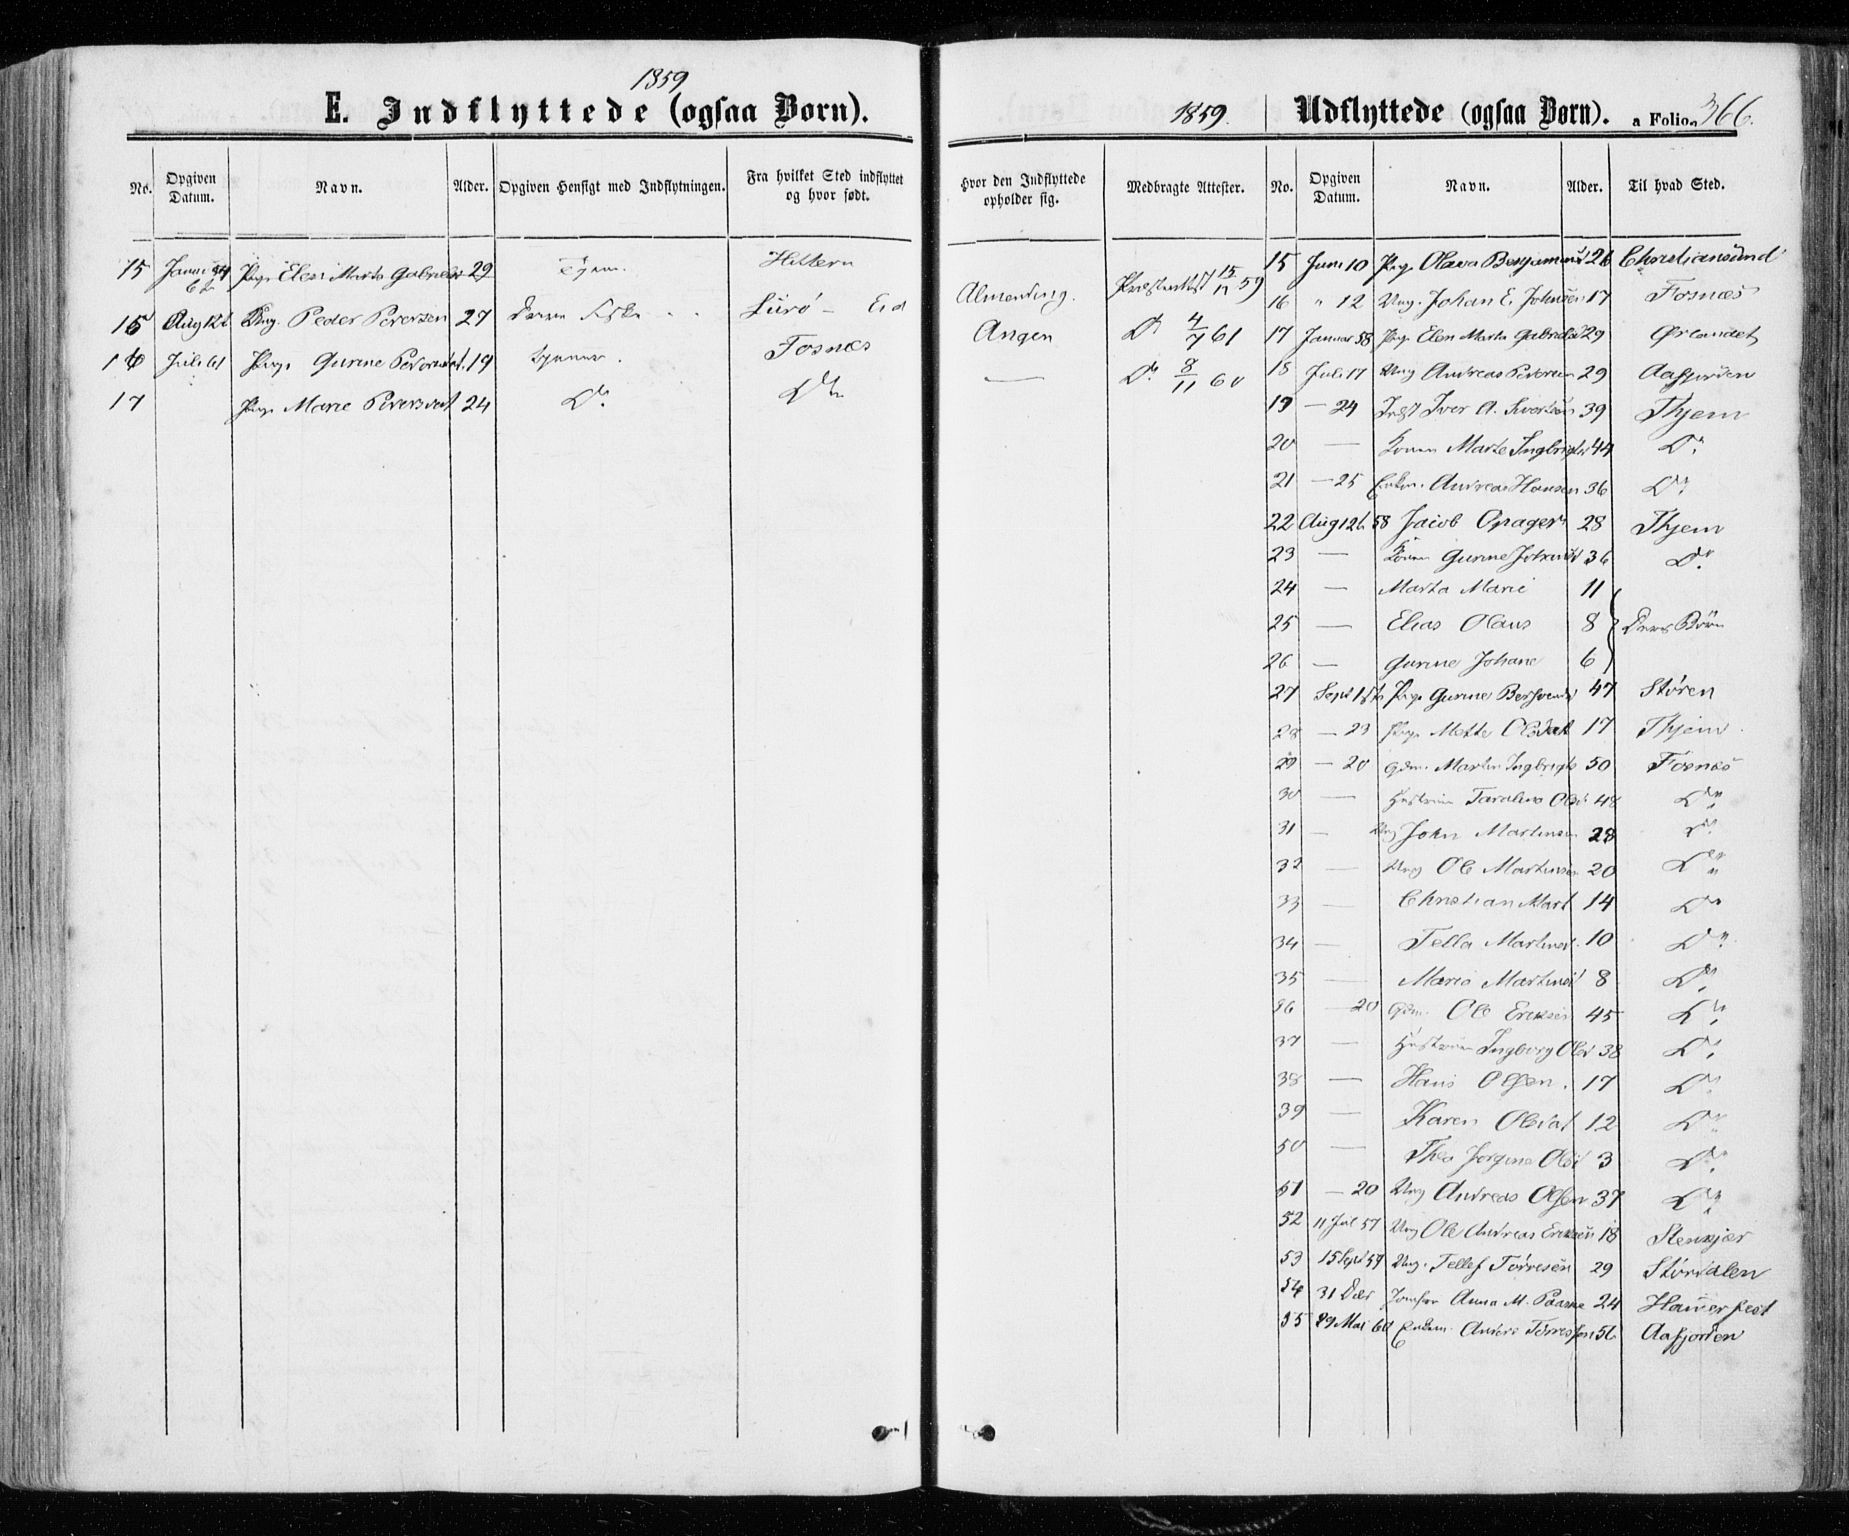 1859
E. Indflyttede (ogsaa Børn).
No. Opgiven Datum. Navn. Alder. Opgiven Hensigt med Indflytningen. Fra hvilket Sted indflyttet og hvor født.
15 Pige Elen Marta 29 Tjene. Hittern
15 Aug Ung. Peder Pedersen 27 Fiske Lurö - Eid
16 Juli 61 Pige Gurine 19 Tjenne. Fosnæs
17 Pige Marie 24 Do Do
1859. Udflyttede (ogsaa Børn). a Folio 366.
Hvor den Indflyttede opholder sig. Medbragte Attester. No. Opgiven Datum. Navn. Alder. Til hvad Sted.
Almending. 15/11 59
Angen Do 4/7 61
— Do 8/11 60
15 Juni 10 Pige Olava 26 Christiansund
16 " 12 Ung. Johan E. Johnsen 17 Fosnæs
17 Januar 58 Pige Elen Marta 29 Ørlandet
18 Juli 17 Ung Andreas Pedersen 29 Aafjorden
19 — 24 Indst Iver A. Sivertsen 39 Thjem
20 — Konen Marte 44 Do
21 — 25 Enkm. Andreas Hansen 36 Do
22 Aug 58 Jacob 28 Thjem
23 — Konen Gurine 36 Do
24 — Marta Marie 11
25 — Elias Olaus 8 Deres Børn
26 — Gurine Johane 6
27 Sept Pige Gurine 47 Støren
28 — 23 Pige Mette Olsdat 17 Thjem
29 — 20 Gdm. Martin 50 Fosnæs
30 — Hustruen 48 Do
31 — Ung John Martinsen 28 Do
32 — Ung Ole Martinsen 20 Do
33 — Christian Mart 14 Do
34 — Tella Martinsd. 10 Do
35 — Maria Martinsd 8 Do
36 — 20 Gdm. Ole Eriksen 45 Do
37 — Hustruen Ingborg Olsd 38 Do
38 — Hans Olsen. 17 Do
39 — Karen Olsdat 12 Do
50 — Thea Jorgine Olsd 3 Do
51 — 20 Ung Andreas Olsen 37 Do
52 11 Jul 57 Ung Ole Andreas Eriksen 18 Stenkjær
53 15 Sept 59 Ung. Tellef Torresen 29 Størdalen
54 31 Decr Jomfru Anna M. 24 Hamerfest
55 29 Mai 60 Enkem. Anders 56 Aafjorden